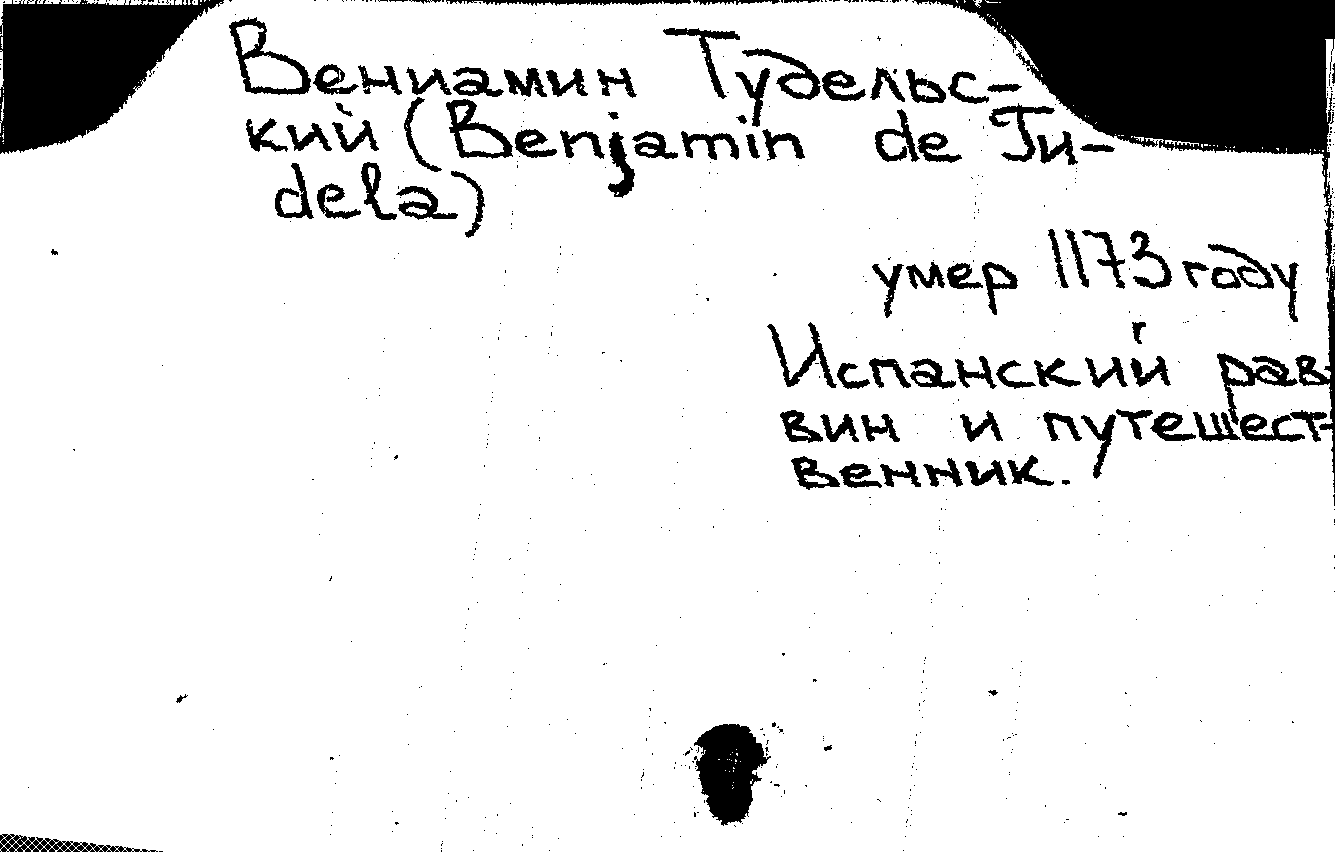 Вениамин Тудельс-
кий (Benjamin de Tu-
dela)
умер 1173 году
Испанский рав-
вин и путешест-
венник.